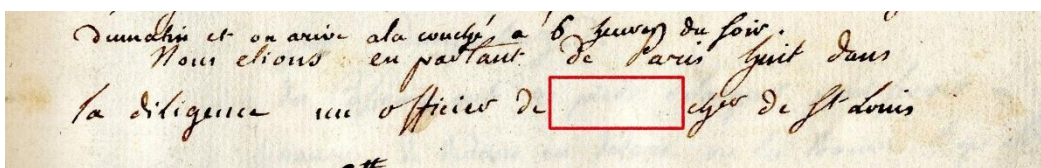 dumatin et on arive ala couché a 6 heures du soir.
Nous etions en partant de Paris huit dans
la diligence un officier de cher de St Louis